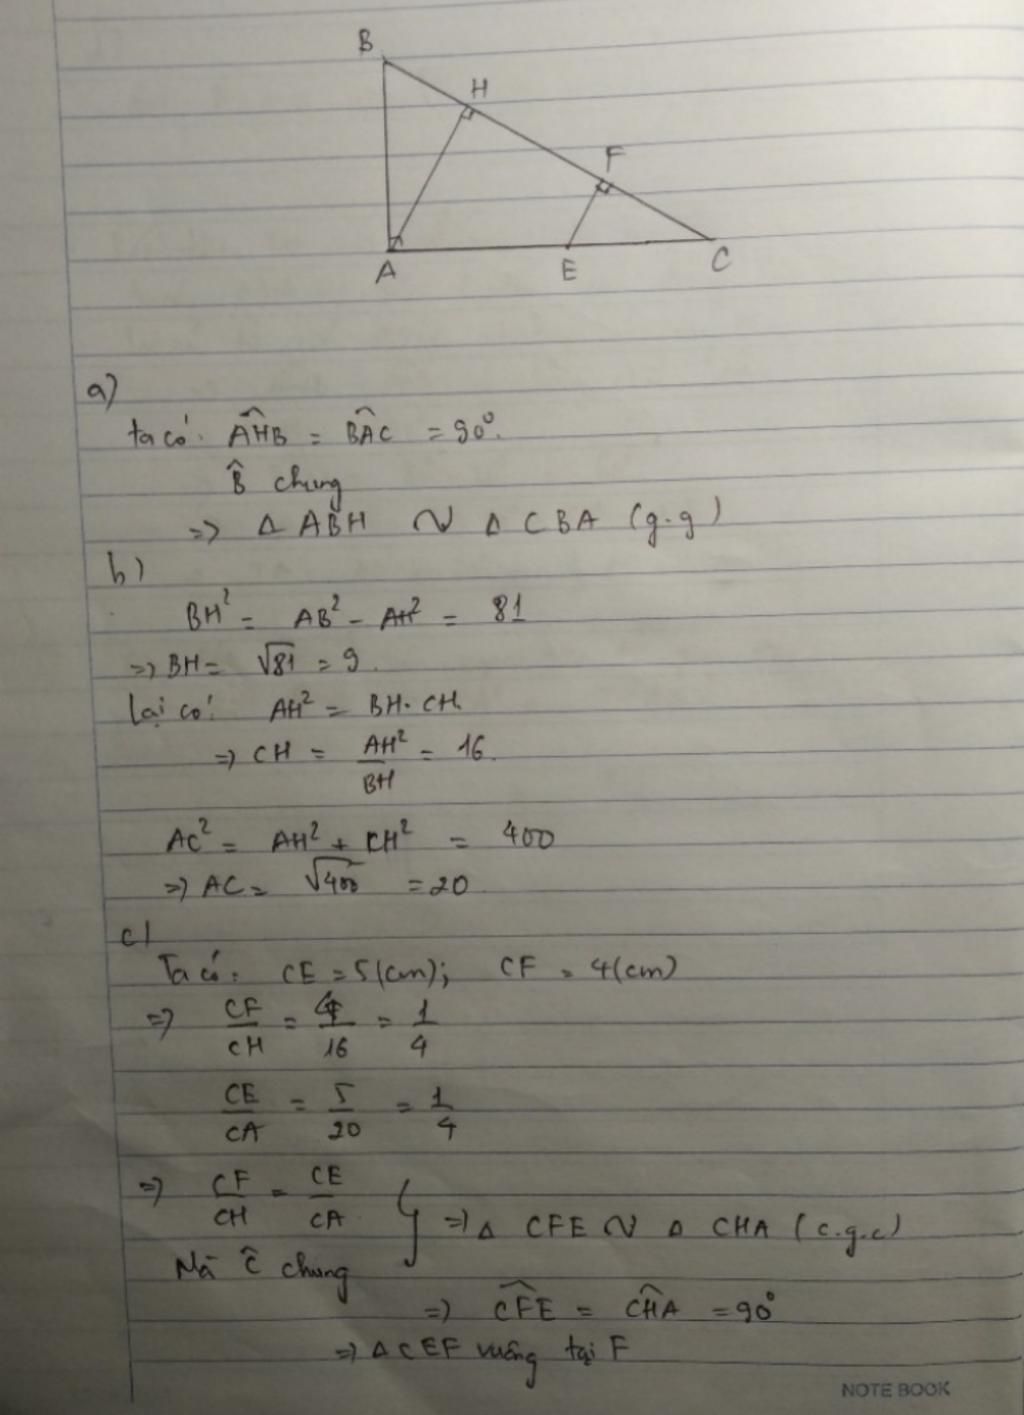 B
H
F
A E C
a)
ta có: AHB = BAC = 90°.
B̂ chung
=> Δ ABH ∽ Δ CBA (g.g)
b)
BH² = AB² - AH² = 81
=> BH = √81 = 9.
Lại có: AH² = BH. CH.
=> CH = AH²/BH = 16.
AC² = AH² + CH² = 400
=> AC = √400 = 20
c)
Ta có: CE = 5(cm); CF = 4(cm)
=> CF/CH = 4/16 = 1/4
CE/CA = 5/20 = 1/4
=> CF/CH = CE/CA
=> Δ CFE ∽ Δ CHA (c.g.c)
Mà Ĉ chung
=> CFE = CHA = 90°
=> Δ CEF vuông tại F
NOTE BOOK